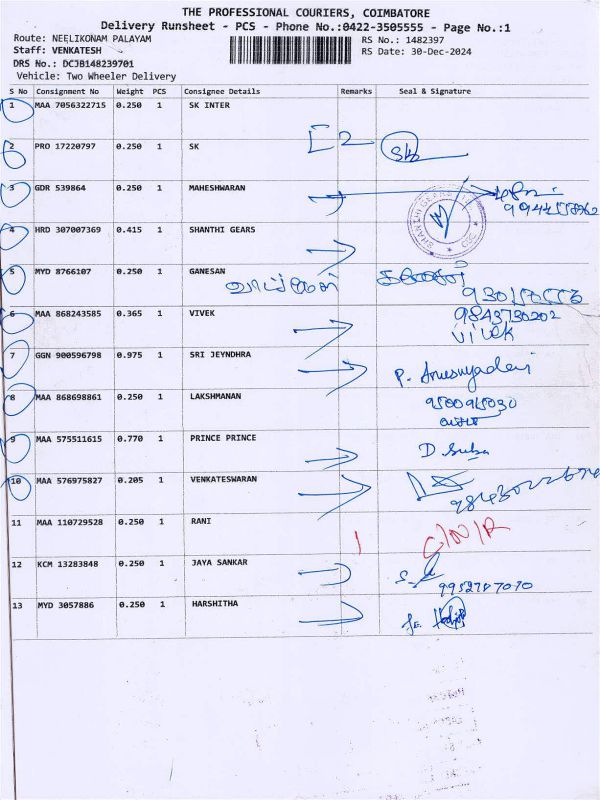 THE PROFESSIONAL COURIERS, COIMBATORE
Delivery Runsheet - PCS - Phone No.:0422-3505555 - Page No.:1
Route: NEELIKONAM PALAYAM RS No.: 1482397
Staff: VENKATESH RS Date: 30-Dec-2024
DRS No.: DCJB148239701
Vehicle: Two Wheeler Delivery
S No Consignment No Weight PCS Consignee Details Remarks Seal & Signature
1 MAA 7056322715 0.250 1 SK INTER
2 PRO 17220797 0.250 1 SK 2 SK
3 GDR 539864 0.250 1 MAHESHWARAN
4 HRD 307007369 0.415 1 SHANTHI GEARS
5 MYD 8766107 0.250 1 GANESAN
6 MAA 868243585 0.365 1 VIVEK 9843730202
vivek
7 GGN 900596798 0.975 1 SRI JEYNDHRA
8 MAA 868698861 0.250 1 LAKSHMANAN
9 MAA 575511615 0.770 1 PRINCE PRINCE D Suba
10 MAA 576975827 0.205 1 VENKATESWARAN
11 MAA 110729528 0.250 1 RANI C/N/R
12 KCM 13283848 0.250 1 JAYA SANKAR
13 MYD 3057886 0.250 1 HARSHITHA